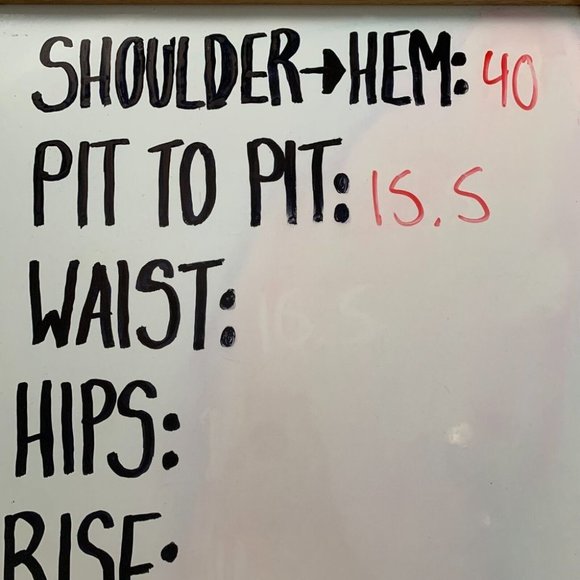 SHOULDER→HEM: 40
PIT TO PIT: 15.5
WAIST:
HIPS:
RISE: